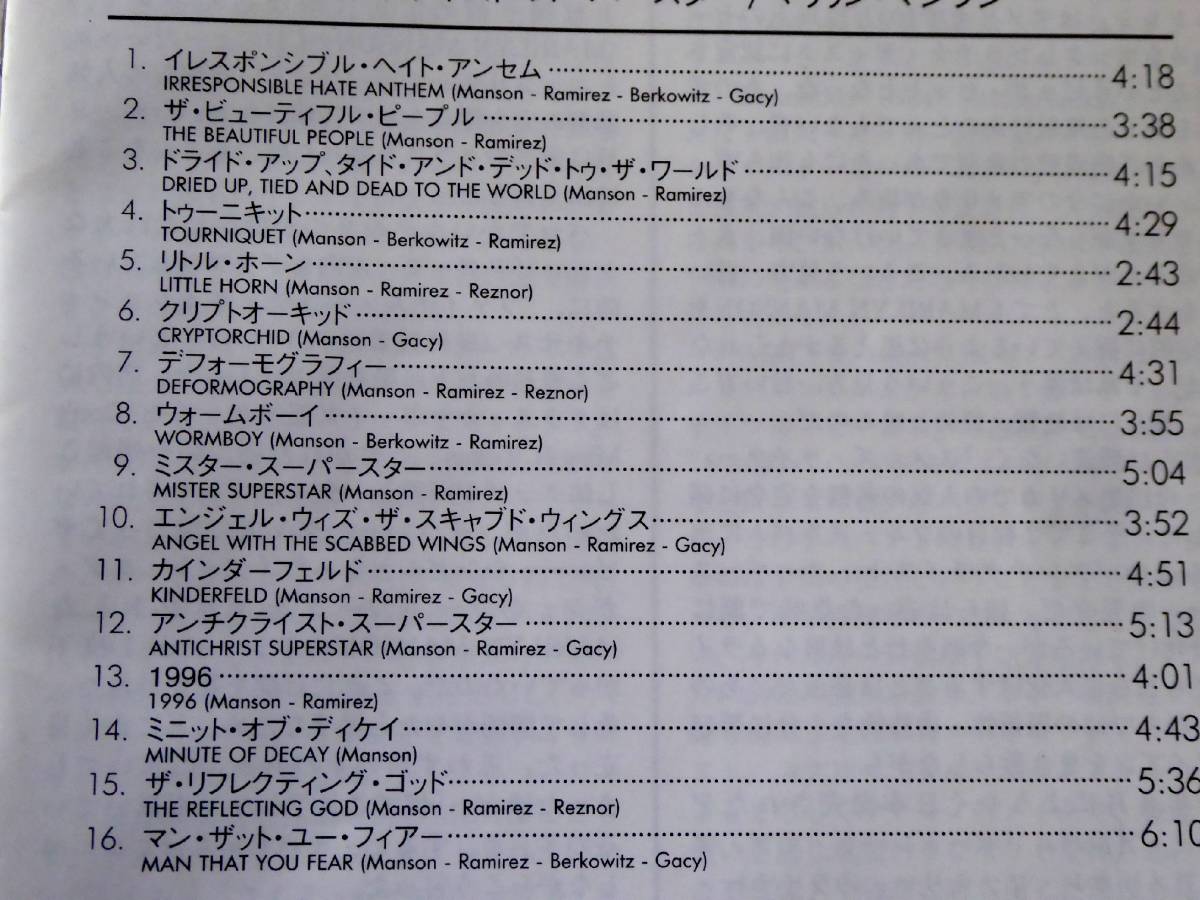 1. イレスポンシブル・ヘイト・アンセム 4:18
IRRESPONSIBLE HATE ANTHEM (Manson - Ramirez - Berkowitz - Gacy)
2. ザ・ビューティフル・ピープル 3:38
THE BEAUTIFUL PEOPLE (Manson - Ramirez)
3. ドライド・アップ、タイド・アンド・デッド・トゥ・ザ・ワールド 4:15
DRIED UP, TIED AND DEAD TO THE WORLD (Manson - Ramirez)
4. トゥーニキット 4:29
TOURNIQUET (Manson - Berkowitz - Ramirez)
5. リトル・ホーン 2:43
LITTLE HORN (Manson - Ramirez - Reznor)
6. クリプトオーキッド 2:44
CRYPTORCHID (Manson - Gacy)
7. デフォーモグラフィー 4:31
DEFORMOGRAPHY (Manson - Ramirez - Reznor)
8. ウォームボーイ 3:55
WORMBOY (Manson - Berkowitz - Ramirez)
9. ミスター・スーパースター 5:04
MISTER SUPERSTAR (Manson - Ramirez)
10. エンジェル・ウィズ・ザ・スキャブド・ウィングス 3:52
ANGEL WITH THE SCABBED WINGS (Manson - Ramirez - Gacy)
11. カインダーフェルド 4:51
KINDERFELD (Manson - Ramirez - Gacy)
12. アンチクライスト・スーパースター 5:13
ANTICHRIST SUPERSTAR (Manson - Ramirez - Gacy)
13. 1996 4:01
1996 (Manson - Ramirez)
14. ミニット・オブ・ディケイ 4:43
MINUTE OF DECAY (Manson)
15. ザ・リフレクティング・ゴッド 5:36
THE REFLECTING GOD (Manson - Ramirez - Reznor)
16. マン・ザット・ユー・フィアー 6:10
MAN THAT YOU FEAR (Manson - Ramirez - Berkowitz - Gacy)